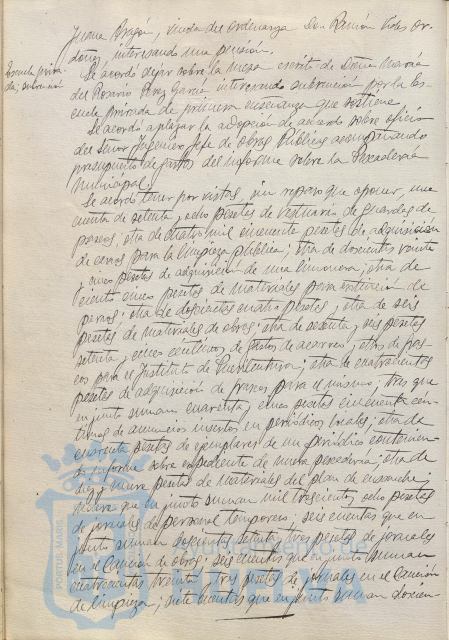 Juana Bragá, viuda del ordenanza Don Ramón Vides Or-
doñez, interesando una pensión.
Escuela priva-
da; subvención
Se acordó dejar sobre la mesa escrito de Doña María
del Rosario Perez Garcia interesando subvención por la Es-
cuela privada de primera enseñanza que sostiene.
Se acordó aplazar la adopción de acuerdo sobre oficio
del Señor Ingeniero Jefe de Obras Públicas acompañando
presupuesto de gastos del informe sobre la Pescadería
Municipal.
Se acordó tener por vistas, sin reparo que oponer, una
cuenta de setenta y ocho pesetas de vestuario de Guardas de
paseos; otra de cuatro mil cincuenta pesetas de adquisición
de carros para la limpieza pública; otra de doscientas veinte
y cinco pesetas de adquisición de una ; otra de
treinta cinco pesetas de materiales para extinción de
perros; otra de doscientas cuatro pesetas; otra de seis
pesetas de materiales de obras; otra de sesenta y seis pesetas
setenta y cinco céntimos de gastos de acarreo; otra de
para el Instituto de Puericultura; otra de cuatrocientas
pesetas de adquisición de frascos para el mismo; tres que
en junto suman cuarenta y cinco pesetas cincuenta cén-
timos de anuncios insertos en periódicos locales; otra de
cuarenta pesetas de ejemplares de un periódico contenien-
do informe sobre expediente de nueva pescadería; otra de
diez y nueve pesetas de materiales del plan de ensanche;
nueve que en junto suman mil trescientas ocho pesetas
de jornales de personal temporero; seis cuentas que en
junto suman doscientas setenta y tres pesetas de jornales
en el Cancion de obras; seis cuentas que en junto suman
cuatrocientas treinta y tres pesetas de jornales en el Cancion
de limpieza; siete cuentas que en junto suman doscien-
PORTUS MARIS